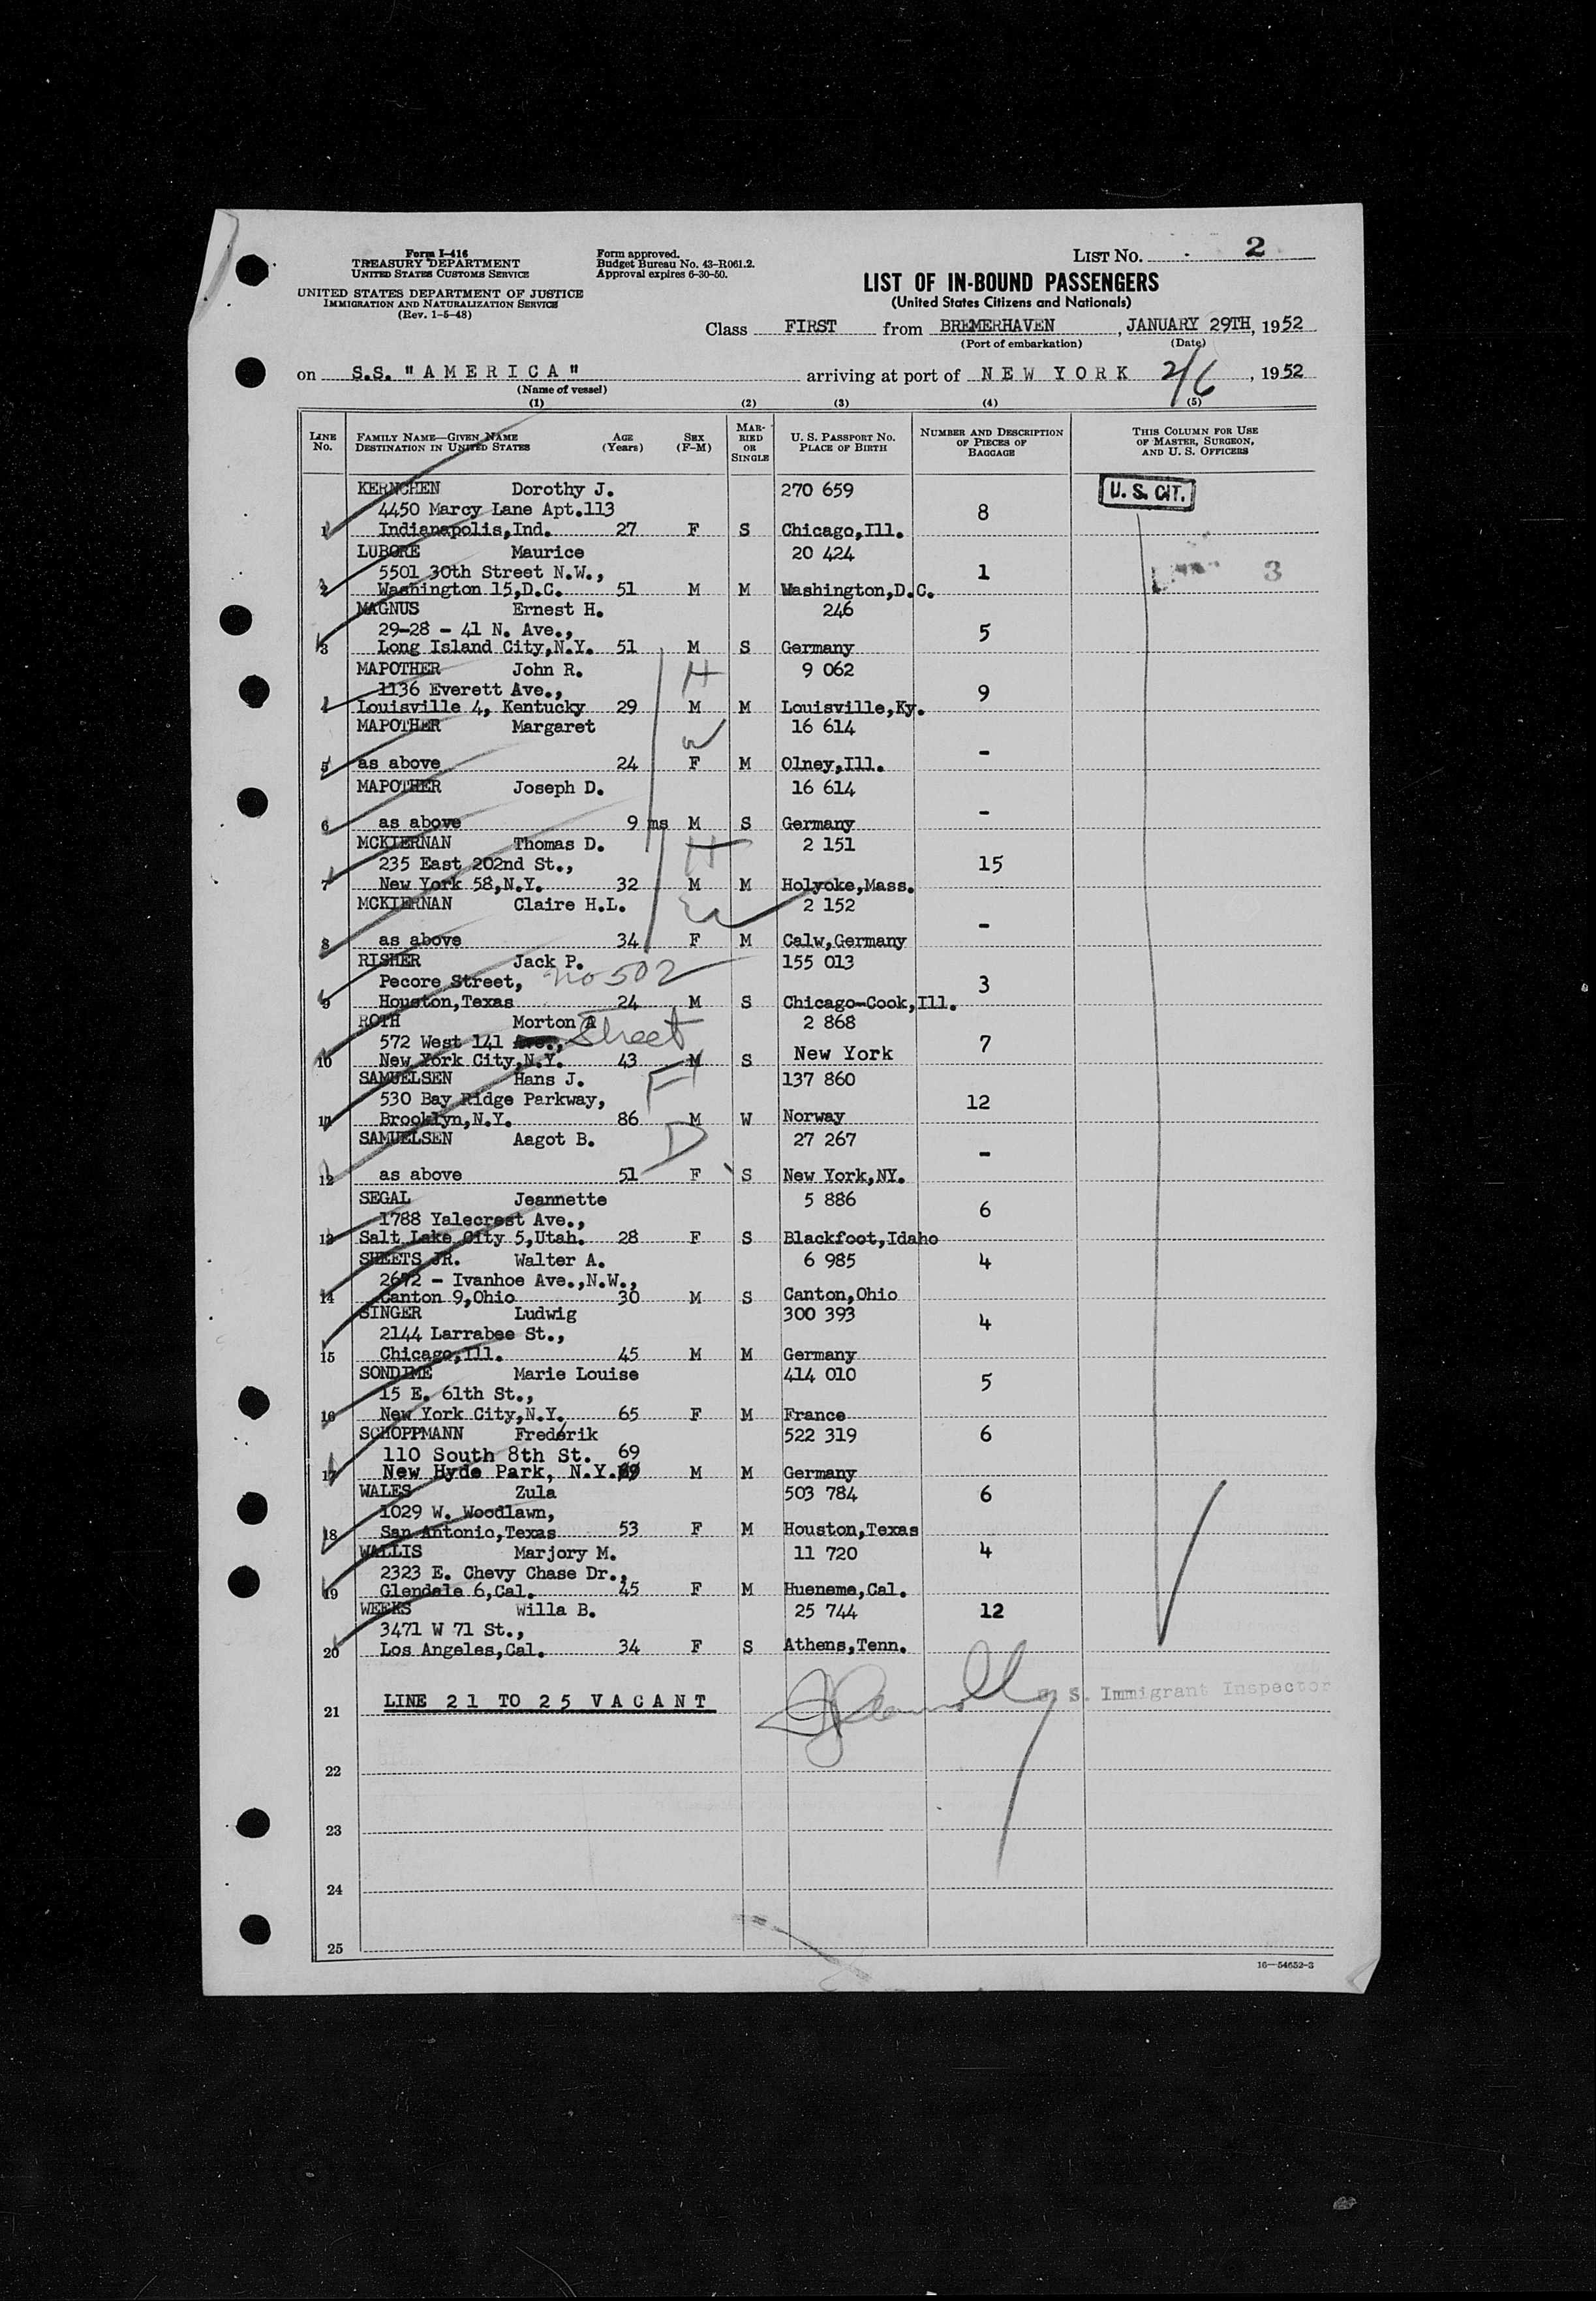 Form I-416
TREASURY DEPARTMENT
UNITED STATES CUSTOMS SERVICE
UNITED STATES DEPARTMENT OF JUSTICE
IMMIGRATION AND NATURALIZATION SERVICE
(Rev. 1-5-48)
Form approved.
Budget Bureau No. 43-R061.2.
Approval expires 6-30-50.
LIST NO. 2
LIST OF IN-BOUND PASSENGERS
(United States Citizens and Nationals)
Class FIRST from BREMERHAVEN, JANUARY 29TH, 1952
(Port of embarkation) (Date)
on S.S. "AMERICA" arriving at port of NEW YORK 2/6, 1952
(Name of vessel)
(1) (2) (3) (4) (5)
LINE NO. FAMILY NAME—GIVEN NAME DESTINATION IN UNITED STATES AGE (Years) SEX (F-M) MARRIED OR SINGLE U. S. PASSPORT NO. PLACE OF BIRTH NUMBER AND DESCRIPTION OF PIECES OF BAGGAGE THIS COLUMN FOR USE OF MASTER, SURGEON, AND U. S. OFFICERS
KERNCHEN Dorothy J. 270 659 U. S. CIT.
4450 Marcy Lane Apt.113 8
1 Indianapolis,Ind. 27 F S Chicago,Ill.
LUBORE Maurice 20 424
5501 30th Street N.W., 1 3
2 Washington 15,D.C. 51 M M Washington,D.C.
MAGNUS Ernest H. 246
29-28 - 41 N. Ave., 5
3 Long Island City,N.Y. 51 M S Germany
MAPOTHER John R. H 9 062
1136 Everett Ave., 9
4 Louisville 4, Kentucky 29 M M Louisville,Ky.
MAPOTHER Margaret W 16 614
-
5 as above 24 F M Olney,Ill.
MAPOTHER Joseph D. 16 614
-
6 as above 9 ms M S Germany
MCKIERNAN Thomas D. H 2 151
235 East 202nd St., 15
7 New York 58,N.Y. 32 M M Holyoke,Mass.
MCKIERNAN Claire H.L. W 2 152
-
8 as above 34 F M Calw,Germany
RISHER Jack P. 155 013
Pecore Street, no 502 3
9 Houston,Texas 24 M S Chicago-Cook,Ill.
ROTH Morton A 2 868
572 West 141 Ave., Street 7
10 New York City,N.Y. 43 M S New York
SAMUELSEN Hans J. F 137 860
530 Bay Ridge Parkway, 12
11 Brooklyn,N.Y. 86 M W Norway
SAMUELSEN Aagot B. D 27 267
-
12 as above 51 F S New York,NY.
SEGAL Jeannette 5 886
1788 Yalecrest Ave., 6
13 Salt Lake City 5,Utah. 28 F S Blackfoot,Idaho
SHEETS JR. Walter A. 6 985 4
2672 - Ivanhoe Ave.,N.W.,
14 Canton 9,Ohio 30 M S Canton,Ohio
SINGER Ludwig 300 393
2144 Larrabee St., 4
15 Chicago,Ill. 45 M M Germany
SONDIME Marie Louise 414 010
15 E. 61th St., 5
16 New York City,N.Y. 65 F M France
SCHOPPMANN Frederik 522 319 6
110 South 8th St. 69
17 New Hyde Park, N.Y. 69 M M Germany
WALES Zula 503 784 6
1029 W. Woodlawn,
18 San Antonio,Texas 53 F M Houston,Texas
WALLIS Marjory M. 11 720 4
2323 E. Chevy Chase Dr.,
19 Glendale 6,Cal. 45 F M Hueneme,Cal.
WEEKS Willa B. 25 744 12
3471 W 71 St.,
20 Los Angeles,Cal. 34 F S Athens,Tenn.
21 LINE 21 TO 25 VACANT S. Immigrant Inspector
22
23
24
25
16—54652-3